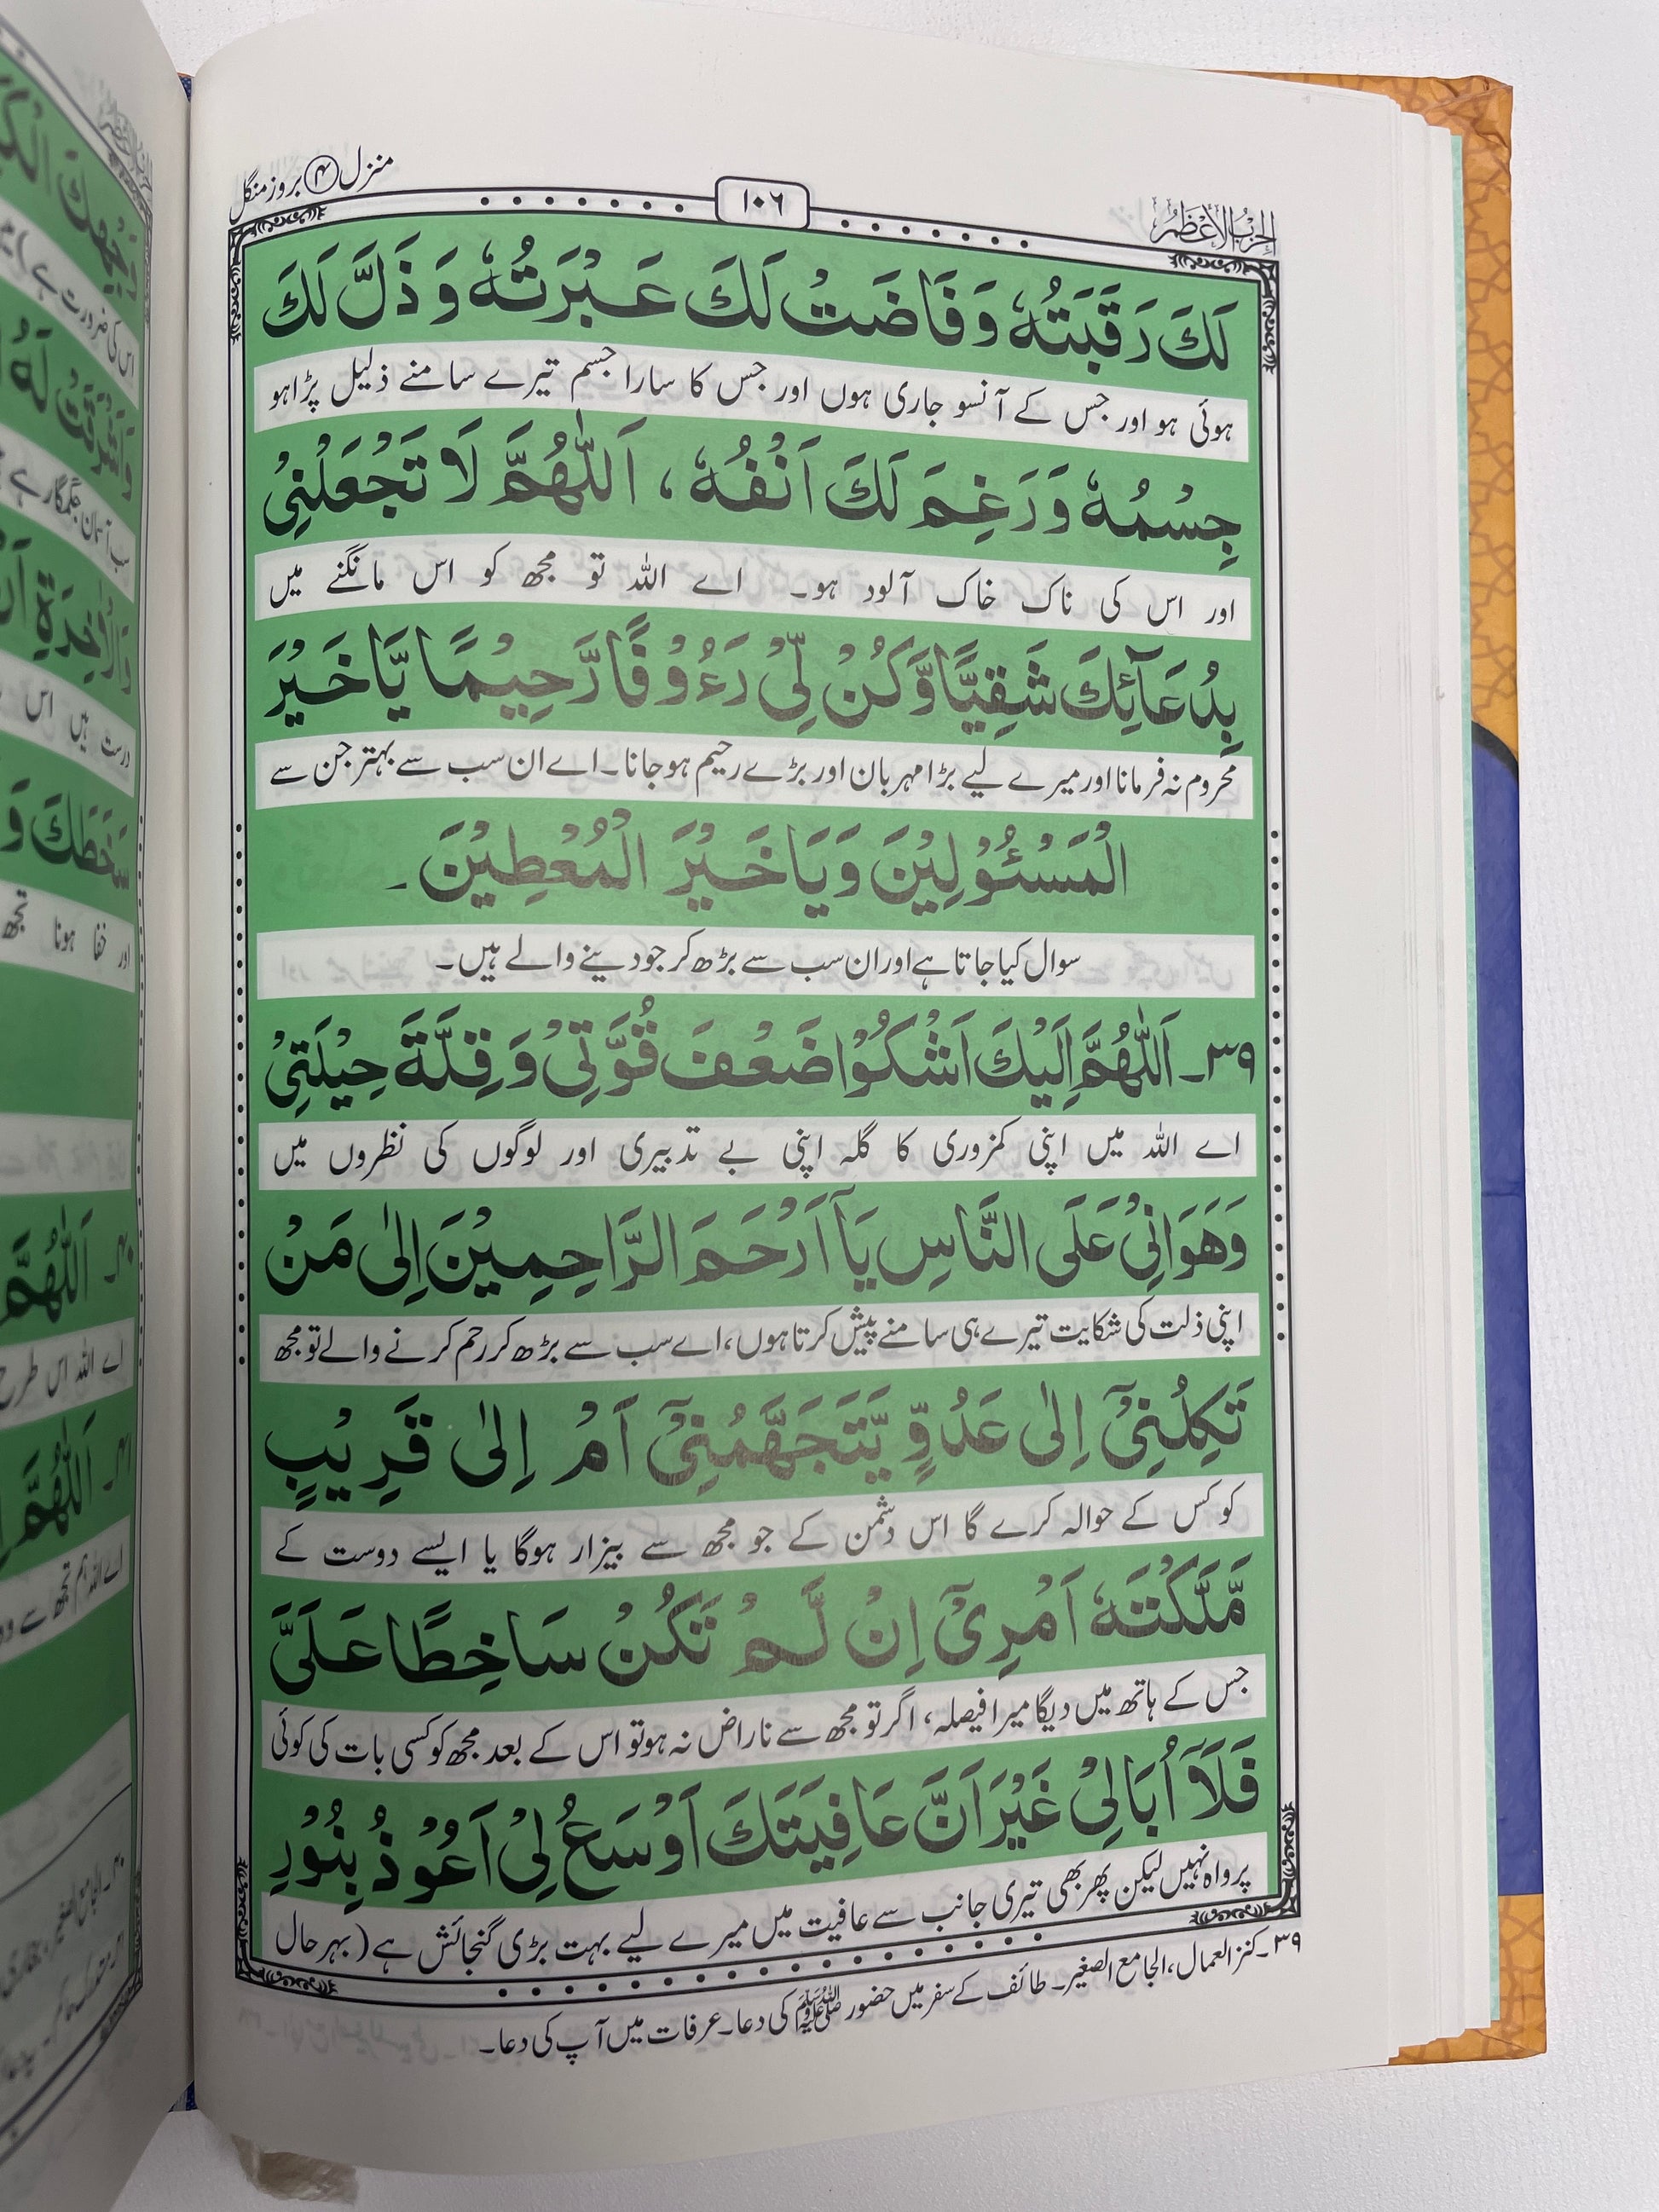 الحزب الاعظم
١٠٦
منزل ۴ بروز منگل
لَكَ رَقَبَتُهٗ وَفَاضَتْ لَكَ عَبْرَتُهٗ وَذَلَّ لَكَ
ہوئی ہو اور جس کے آنسو جاری ہوں اور جس کا سارا جسم تیرے سامنے ذلیل پڑا ہو
جِسْمُهٗ وَرَغِمَ لَكَ اَنْفُهٗ، اَللّٰهُمَّ لَا تَجْعَلْنِیْ
اور اس کی ناک خاک آلود ہو۔ اے اللہ تو مجھ کو اس مانگنے میں
بِدُعَآئِكَ شَقِیًّا وَّكُنْ لِّیْ رَءُوْفًا رَّحِیْمًا یَّا خَیْرَ
محروم نہ فرمانا اور میرے لیے بڑا مہربان اور بڑے رحیم ہوجانا۔ اے ان سب سے بہتر جن سے
الْمَسْئُوْلِیْنَ وَیَا خَیْرَ الْمُعْطِیْنَ۔
سوال کیا جاتا ہے اور ان سب سے بڑھ کر جو دینے والے ہیں۔
٣٩۔ اَللّٰهُمَّ اِلَیْكَ اَشْكُوْا ضَعْفَ قُوَّتِیْ وَقِلَّةَ حِیْلَتِیْ
اے اللہ میں اپنی کمزوری کا گلہ اپنی بے تدبیری اور لوگوں کی نظروں میں
وَهَوَانِیْ عَلَی النَّاسِ یَاۤ اَرْحَمَ الرَّاحِمِیْنَ اِلٰی مَنْ
اپنی ذلت کی شکایت تیرے ہی سامنے پیش کرتا ہوں، اے سب سے بڑھ کر رحم کرنے والے تو مجھ
تَكِلُنِیْۤ اِلٰی عَدُوٍّ یَّتَجَهَّمُنِیْۤ اَمْ اِلٰی قَرِیْبٍ
کو کس کے حوالہ کرے گا اس دشمن کے جو مجھ سے بیزار ہوگا یا ایسے دوست کے
مَّلَّكْتَهٗ اَمْرِیْۤ اِنْ لَّمْ تَكُنْ سَاخِطًا عَلَیَّ
جس کے ہاتھ میں دیگا میرا فیصلہ، اگر تو مجھ سے ناراض نہ ہو تو اس کے بعد مجھ کو کسی بات کی کوئی
فَلَاۤ اُبَالِیْ غَیْرَ اَنَّ عَافِیَتَكَ اَوْسَعُ لِیْ اَعُوْذُ بِنُوْرِ
پرواہ نہیں لیکن پھر بھی تیری جانب سے عافیت میں میرے لیے بہت بڑی گنجائش ہے (بہر حال
٣٩۔ کنز العمال، الجامع الصغیر۔ طائف کے سفر میں حضور ﷺ کی دعا۔ عرفات میں آپ کی دعا۔